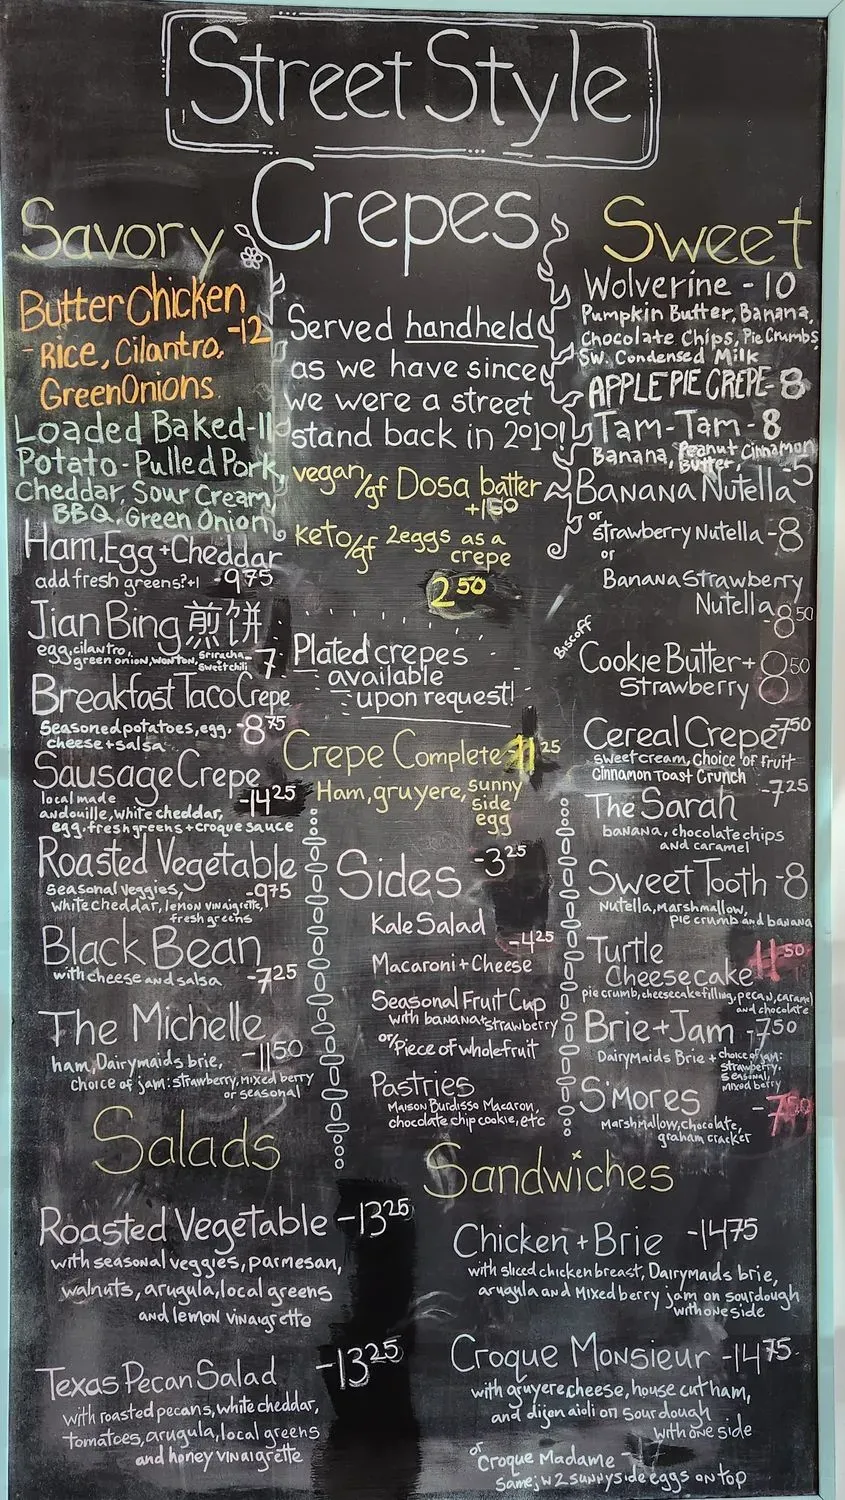 Street Style
Crepes
Savory
Butter Chicken
-Rice, Cilantro, -12
Green Onions
Loaded Baked-11
Potato-Pulled Pork,
Cheddar, Sour Cream
BBQ, Green Onion
Ham, Egg + Cheddar
add fresh greens? +1 -9.75
Jian Bing 煎饼
egg, cilantro,
green onion, wonton, sriracha
sweet chili 7
Breakfast Taco Crepe
Seasoned potatoes, egg, -8.75
cheese + salsa
Sausage Crepe
local made -14.25
andouille, white cheddar,
egg, fresh greens + croque sauce
Roasted Vegetable
seasonal veggies, -9.75
white cheddar, lemon vinaigrette,
fresh greens
Black Bean
with cheese and salsa -7.25
The Michelle
ham, Dairymaids brie, -11.50
choice of jam: strawberry, mixed berry
or seasonal
Served handheld
as we have since
we were a street
stand back in 2010!
vegan/gf Dosa batter
+1.50
keto/gf 2 eggs as a
crepe
2.50
Plated crepes
available
upon request!
Crepe Complete -11.25
Ham, gruyere, sunny
side
egg
Sides -3.25
Kale Salad
-4.25
Macaroni + Cheese
Seasonal Fruit Cup
with banana + strawberry
or/Piece of whole fruit
Pastries
Maison Burdisso Macaron,
chocolate chip cookie, etc
Sweet
Wolverine - 10
Pumpkin Butter, Banana,
Chocolate Chips, Pie Crumbs
Sw. Condensed Milk
APPLE PIE CREPE - 8
Tam-Tam - 8
Banana, Peanut Butter, Cinnamon
Banana Nutella 5
or
strawberry Nutella - 8
or
Banana Strawberry
Nutella -8.50
Biscoff
Cookie Butter + 8.50
Strawberry
Cereal Crepe -7.50
sweet cream, choice of fruit
Cinnamon Toast Crunch
The Sarah -7.25
banana, chocolate chips
and caramel
Sweet Tooth - 8
Nutella, marshmallow,
pie crumb and banana
Turtle 11.50
Cheesecake
pie crumb, cheesecake filling, pecan, caramel
and chocolate
Brie + Jam -7.50
DairyMaids Brie + choice of jam:
strawberry,
seasonal,
mixed berry
S'Mores -7.50
Marshmallow, chocolate,
graham cracker
Salads
Roasted Vegetable -13.25
with seasonal veggies, parmesan,
walnuts, arugula, local greens
and lemon vinaigrette
Texas Pecan Salad -13.25
with roasted pecans, white cheddar,
tomatoes, arugula, local greens
and honey vinaigrette
Sandwiches
Chicken + Brie -14.75
with sliced chicken breast, Dairymaids brie,
arugula and mixed berry jam on sourdough
with one side
Croque Monsieur -14.75
with gruyere cheese, house cut ham,
and dijon aioli on sourdough
with one side
or
Croque Madame -
Same; w 2 sunny side eggs on top